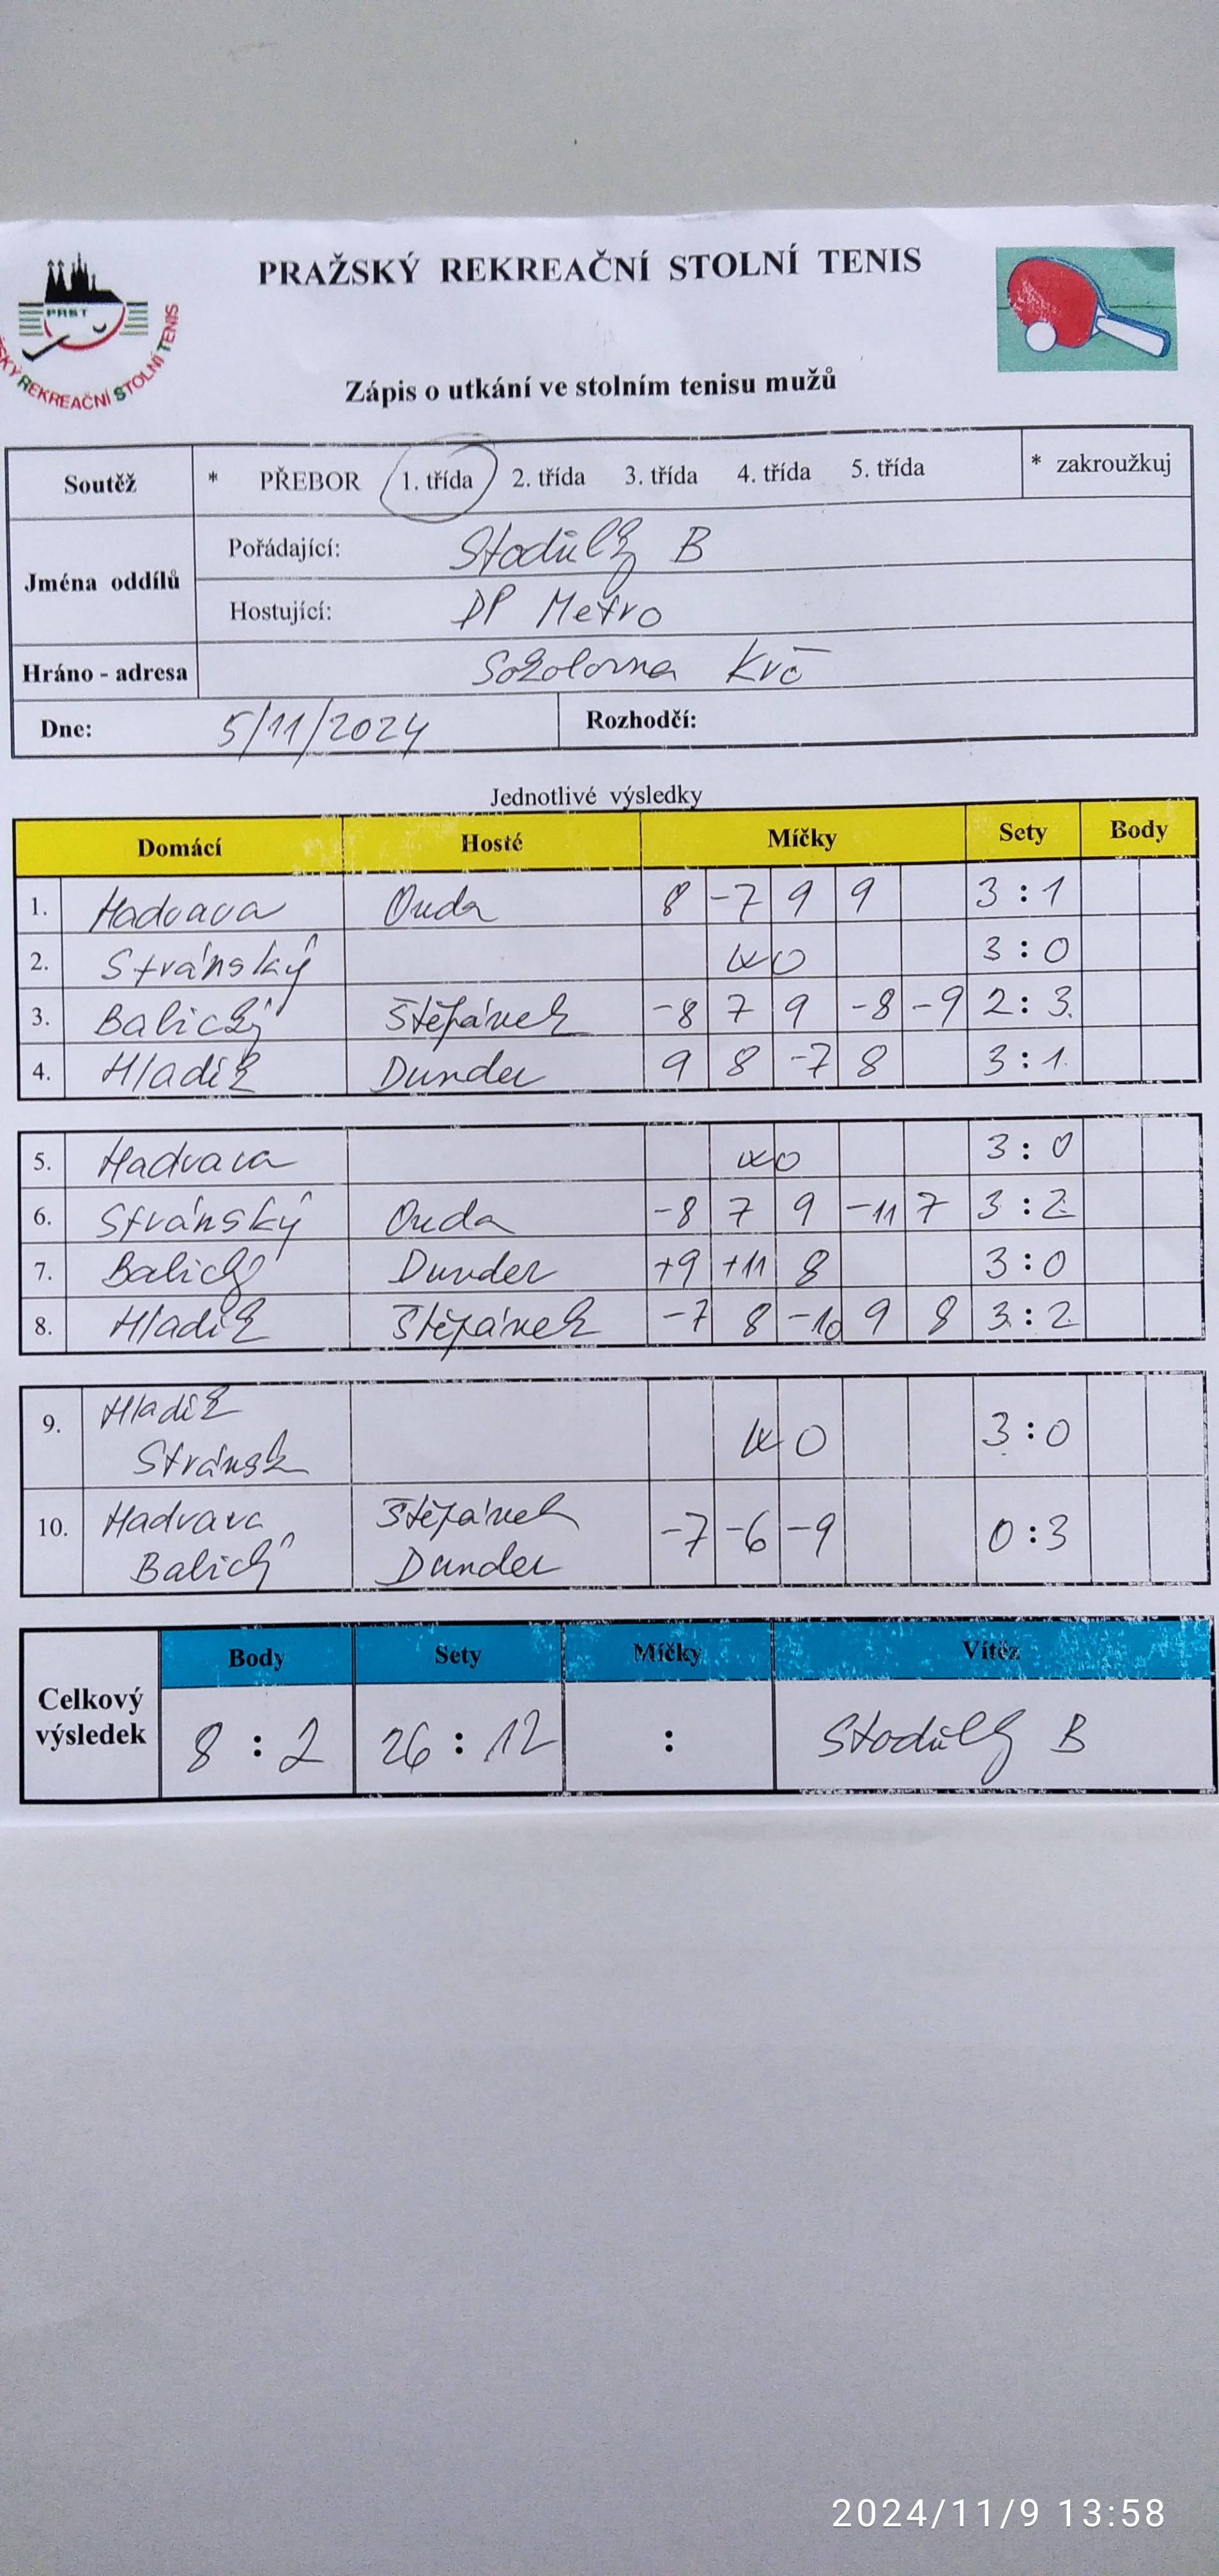 PRAŽSKÝ REKREAČNÍ STOLNÍ TENIS
PRST
PRAŽSKÝ REKREAČNÍ STOLNÍ TENIS
Zápis o utkání ve stolním tenisu mužů
Soutěž * PŘEBOR 1. třída 2. třída 3. třída 4. třída 5. třída * zakroužkuj
Jména oddílů
Pořádající: Stodůlky B
Hostující: DP Metro
Hráno - adresa Sokolovna Krč
Dne: 5/11/2024 Rozhodčí:
Jednotlivé výsledky
Domácí Hosté Míčky Sety Body
1. Hadvava Ouda 8 -7 9 9 3 : 1
2. Stránský WO 3 : 0
3. Balický Štěpánek -8 7 9 -8 -9 2 : 3
4. Hladík Dunder 9 8 -7 8 3 : 1
5. Hadvava WO 3 : 0
6. Stránský Ouda -8 7 9 -11 7 3 : 2
7. Balický Dunder +9 +11 8 3 : 0
8. Hladík Štěpánek -7 8 -10 9 8 3 : 2
9. Hladík
Stránsk WO 3 : 0
10. Hadvava Štěpánek
Balický Dunder -7 -6 -9 0 : 3
Body Sety Míčky Vítěz
Celkový výsledek 8 : 2 26 : 12 : Stodůlky B
2024/11/9 13:58